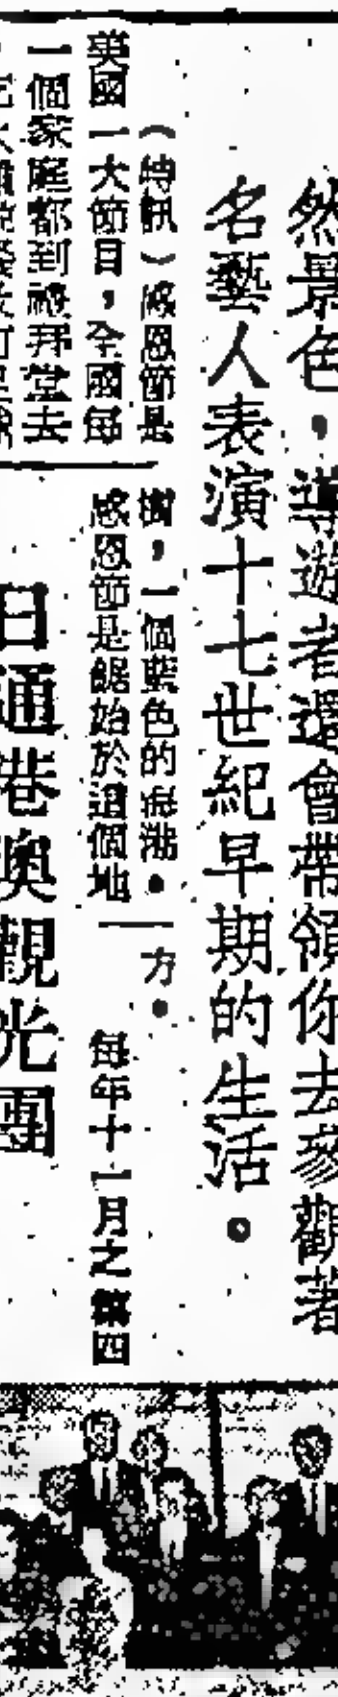 然景色，導遊者還會帶領你去參觀著
名藝人表演十七世紀早期的生活。
（特訊）感恩節是
美國一大節目，全國每
一個家庭都到禮拜堂去
樹，一個藍色的海湖。
感恩節是開始於這個地
方。
每年十一月之第四
日通港澳觀光團